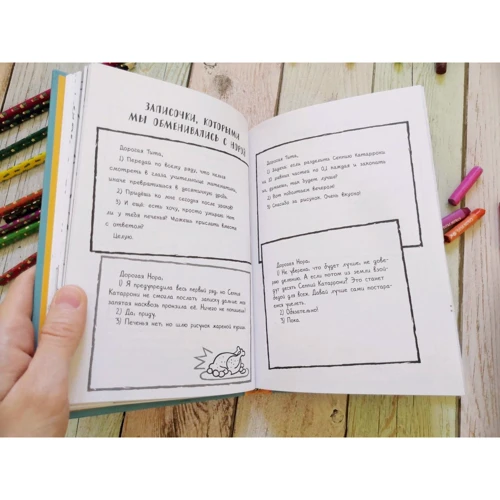 ЗАПИСОЧКИ, КОТОРЫМИ
МЫ ОБМЕНИВАЛИСЬ С НОРОЙ
Дорогая Тита,
1) Передай по всему ряду, что нельзя
смотреть в глаза учительнице математики,
иначе превратишься в десятичную дробь.
2) Придёшь ко мне сегодня после школы?
3) Я ещё есть хочу, просто умираю. Нет
ли у тебя печенья? Можешь прислать вместе
с ответом?
Целую.
Дорогая Нора,
1) Я предупредила весь первый ряд, но Сепия
Катаррони не смогла послать записку дальше:
запятая насквозь пронзила её. Ничего не попишешь!
2) Да, приду.
3) Печенья нет, но шлю рисунок жареной курицы.
Дорогая Тита,
1) Задача: если разделить Сепию Катаррони
на 10 равных частей по 0,1 каждая и закопать
их, думаешь, мир будет лучше?
2) Вот поболтаем вечером!
3) Спасибо за рисунок. Очень вкусно!
Дорогая Нора,
1) Не уверена, что будет лучше, не дове-
ряю делению. А если потом из земли взой-
дут десять Сепий Катаррони? Это станет
бедой для всех. Давай лучше сами постара-
емся уцелеть.
2) Обязательно!
3) Пока.